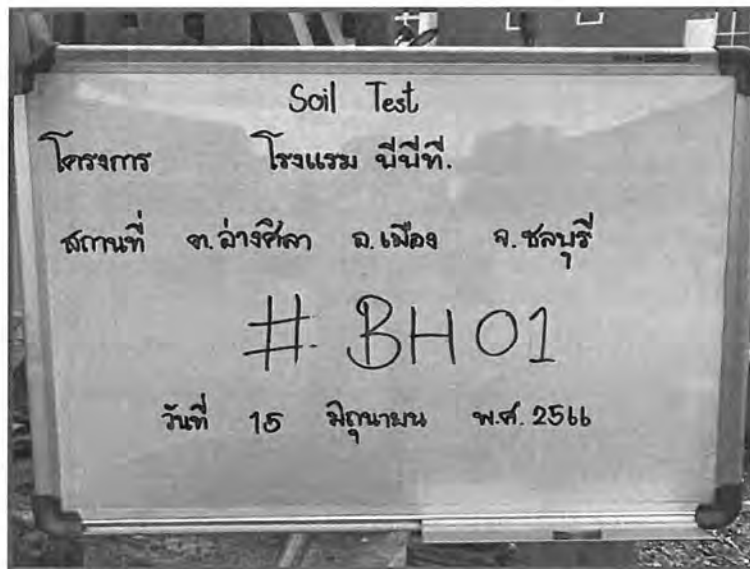 Soil Test
โครงการ โรงแรม บีบีที.
สถานที่ ต.อ่างศิลา อ.เมือง จ.ชลบุรี
# BH01
วันที่ 15 มิถุนายน พ.ศ. 2566